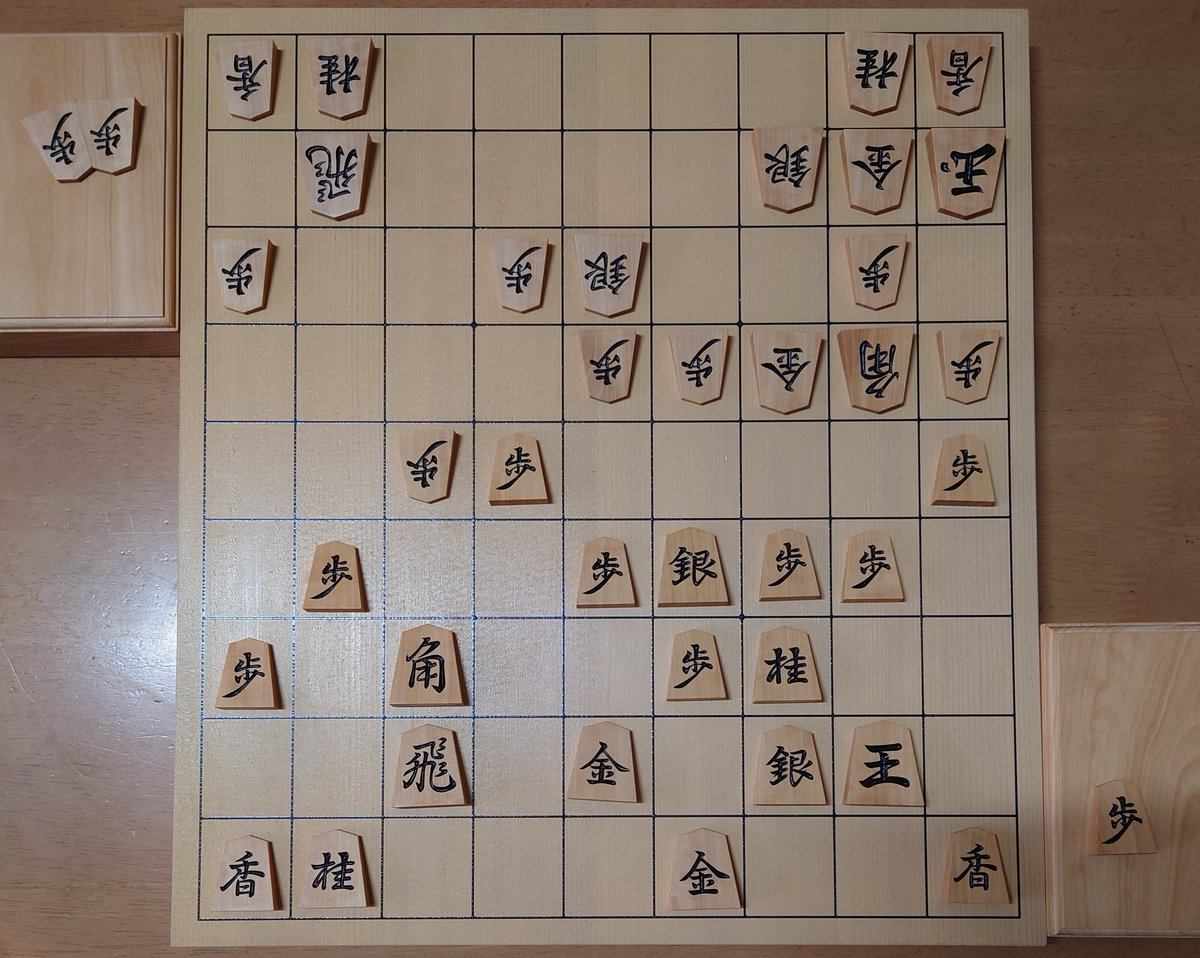 香桂桂香
飛銀金玉
歩歩銀歩
歩歩金角歩
歩歩歩
歩歩銀歩歩
歩角歩桂
飛金銀王
香桂金香
歩歩
歩